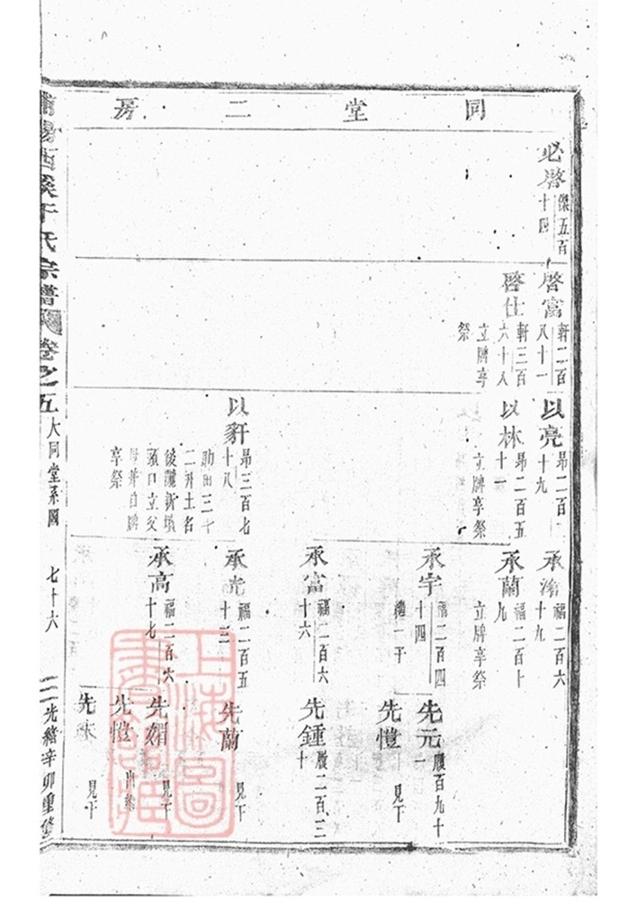 同堂二房
必啓 傑五百十四
啓富 軒二百八十一
啓仕 軒三百六十八 立牌享祭
以亮 昻二百十九
以林 昻二百五十一 立牌享祭
以豣 昻三百七十八 助田三十二 土名 後 新墳 項口立父母并自牌享祭
承 福二百六十九
承蘭 福二百十九 立牌享祭
承宇 福二百四十四 繼一子
承富 福二百六十六
承光 福二百五十三
承高 福二百六十七
先元 履百九十一
先愷 見下
先鍾 履二百三十
先蘭 見下
先 見下
先愷 出繼
先 見下
浦陽西溪于氏宗譜 卷之五 大同堂系圖 七十六 光緒辛卯重修
上海圖書館藏